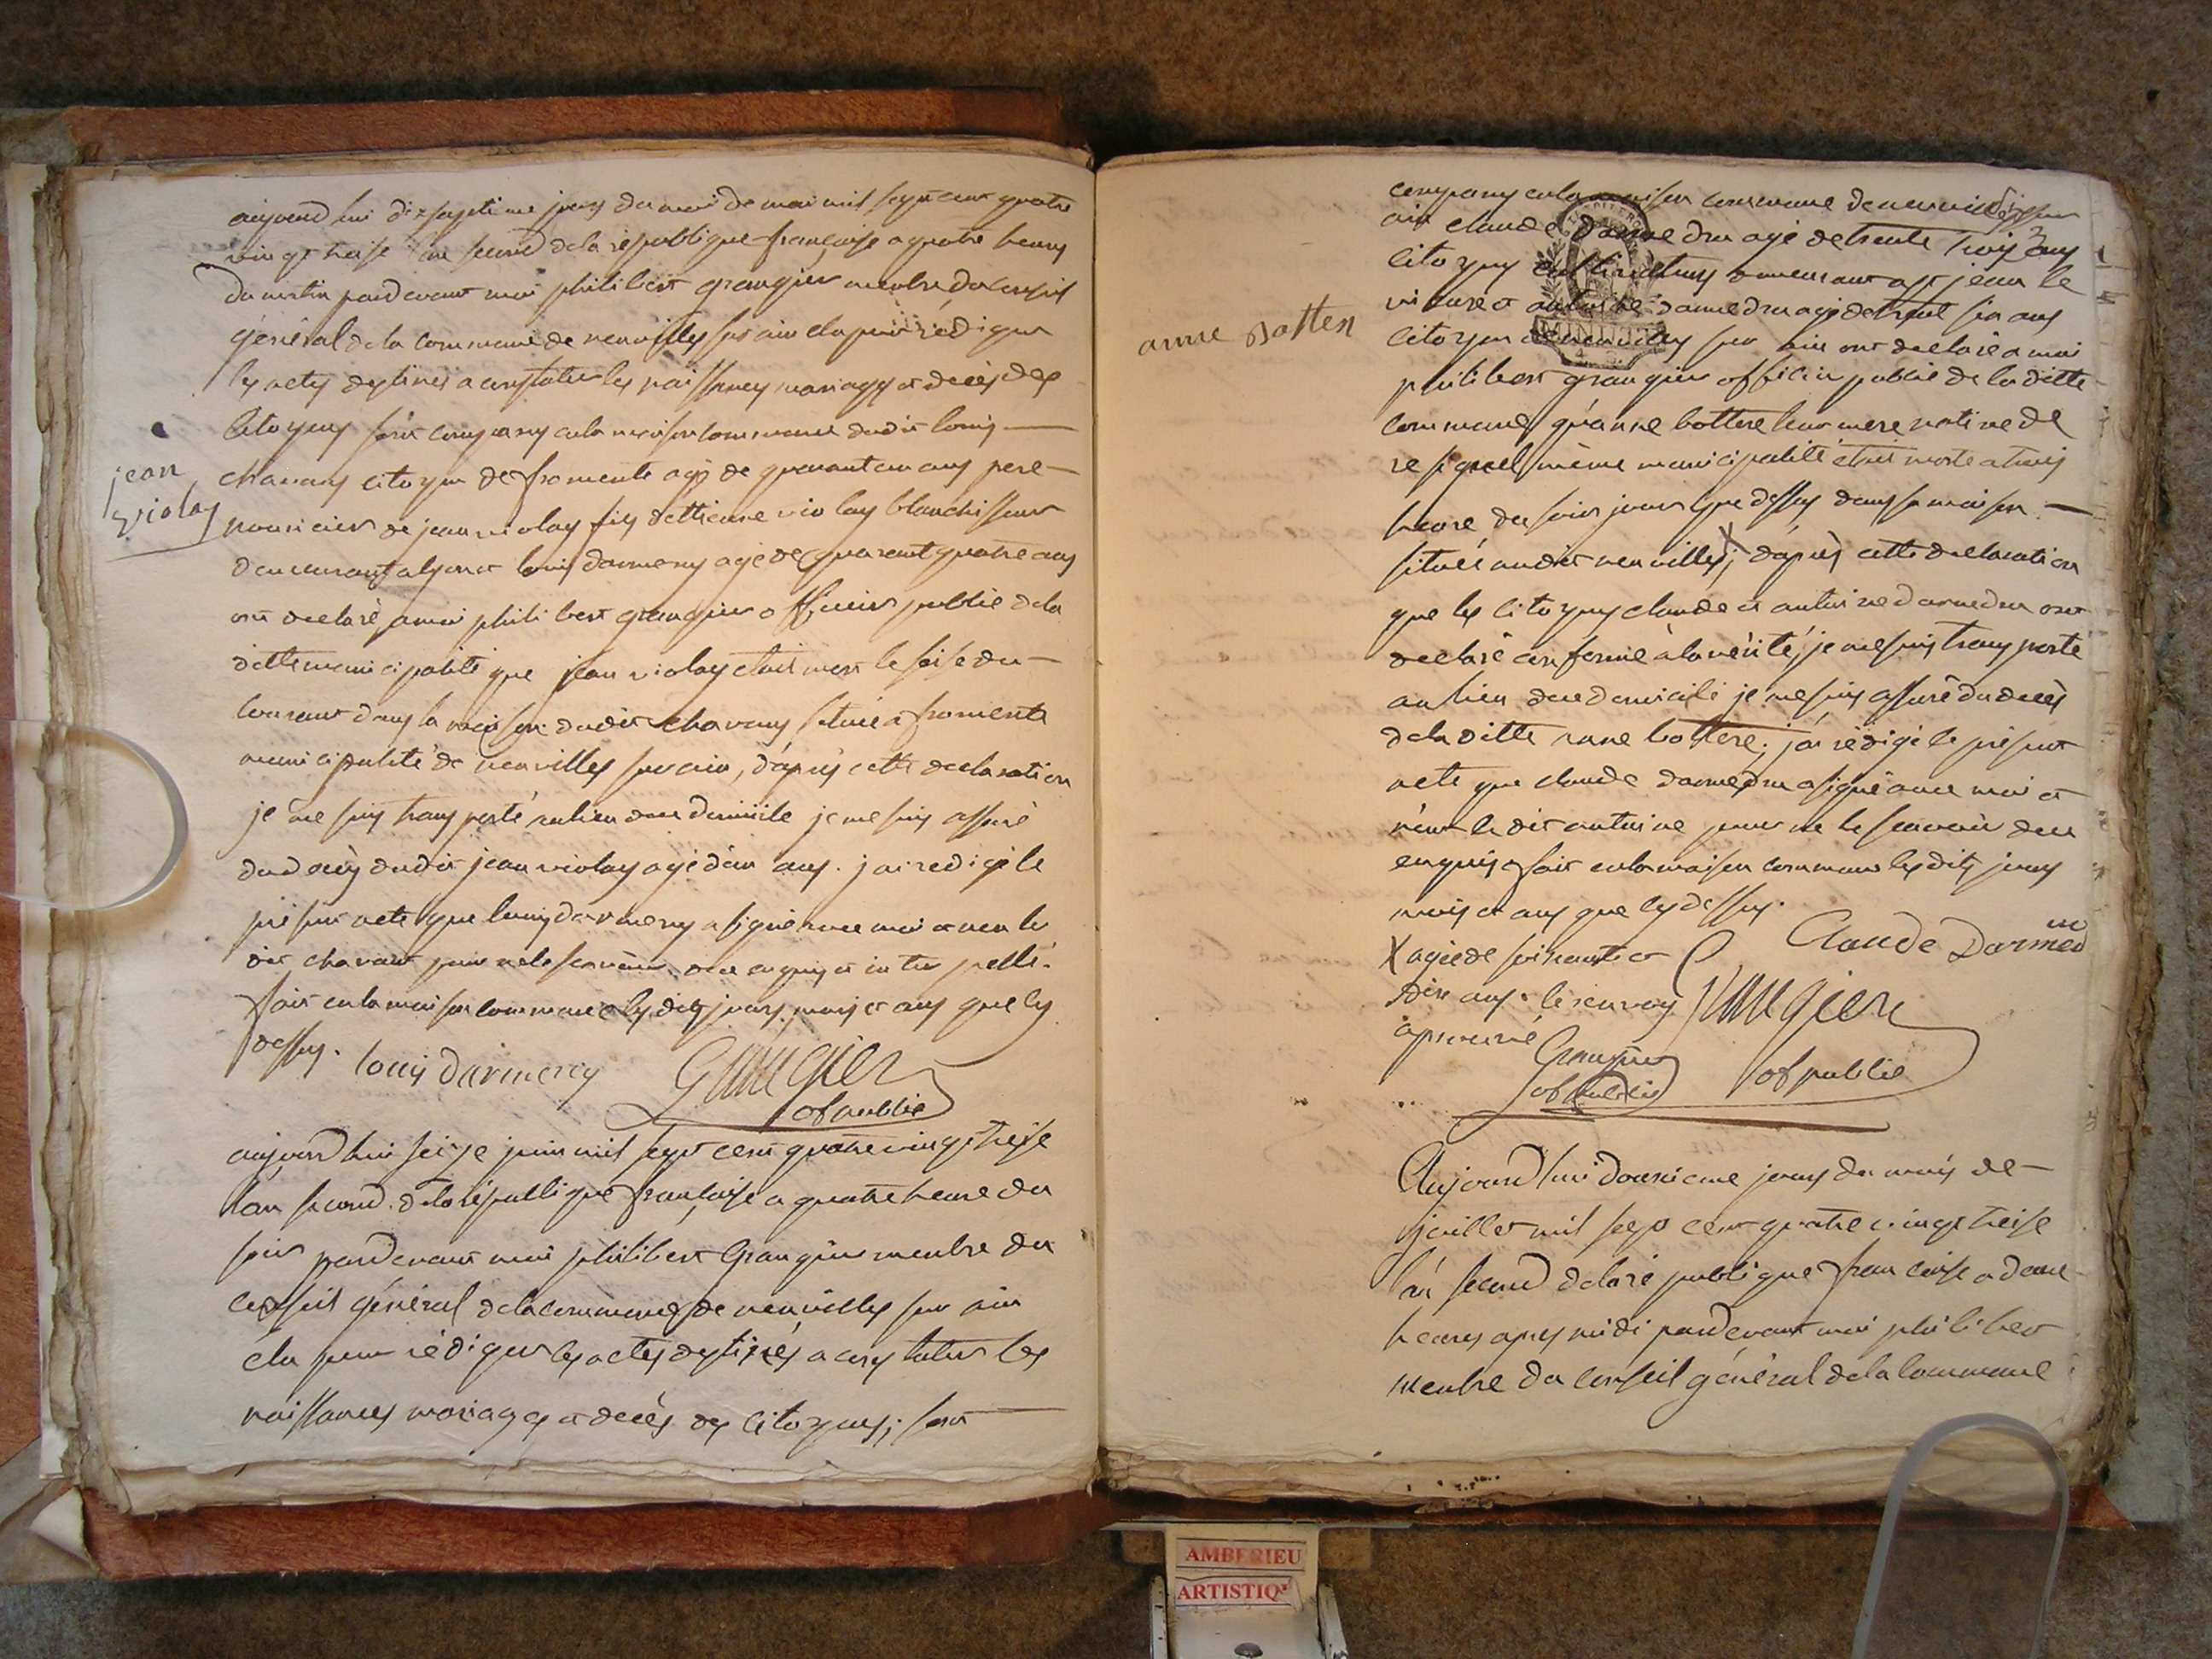 aujourd hui dixseptieme jours du moi de mai mil sept cent quatre
vingt treise an second de la république françaife a quatre heures
du matin pardevant moi philibert grangier membre du conseil
général de la commune de neuvilles sur ain elu pour rédiger
les actes destinés a constater les naissances mariages et décès des
citoyens sont comparus en la maison commune dudit louis
chavant citoyen de fromente agé de quarant un ans pere
nouricier de jean violay fils dettienne violay blanchisseur
demeurant a lyon et louis darmeny agé de quarant quatre ans
ont declaré a moi philibert grangier officier public de la
ditte municipalité que jean violay etait mort le seise du
courant dans la maison dudit chavans située a fromente
municipalité de neuvilles sur ain, d'après cette declaration
je me suis transporté au lieu dudit domicile je me suis assuré
du décès dudit jean violay agé d'un ans. j'ai redigé le
présent acte que louis darmeny a signé avec moi et non le
dit chavant pour ne le scavoir de ce enquis et inter pellé.
fait en la maison commune les dits jours mois et ans que cy
dessus. louis darmeny Grangier
of public
jean
violay
aujourd hui seize juin mil sept cent quatre vingt treise
l'an second de la république françaife a quatre heure du
soir pardevant moi philibert Grangier membre du
conseil général de la commune de neuvilles sur ain
élu pour rédiger les actes destinés a constater les
naissances mariages et décès des citoyens; sont
comparus en la maison commune de neuvilles sur
ain claude darmedru agé de trente trois ans
citoyens cultivateurs demeurant a st jean le
vieure et antoine darmedru agé de trent six ans
citoyen de neuvilles sur ain ont declaré a moi
philibert grangier officier public de la ditte
commune qu'anne bottere leur mere native de
même municipalité étoit morte a trois
heure du soir jours que dessus dans sa maison
située audit neuvilles X, d'après cette declaration
que les citoyens claude et antoine darmedru ont
declaré conforme à la vérité, je me suis transporté
au lieu dudit domicile je me suis assuré du decès
de la ditte anne bottere; j'ai rédigé le présent
acte que claude darmedru a signé avec moi et
non le dit antoine pour ne le scavoir de ce
enquis fait en la maison commune les dits jours
mois et ans que cy dessus.
anne Botten
X agée de soixante et
dix ans. le renvoy
aprouvé
Grangier
of public
Claude Darmed
Grangier
of public
MINUTE
Aujourd hui douzieme jours du mois de
juillet mil sept cent quatre vingt treise
l'an second de la république françaife a deux
heures apres midi pardevant moi philibert
membre du conseil général de la commune
AMBERIEU
ARTISTIQ